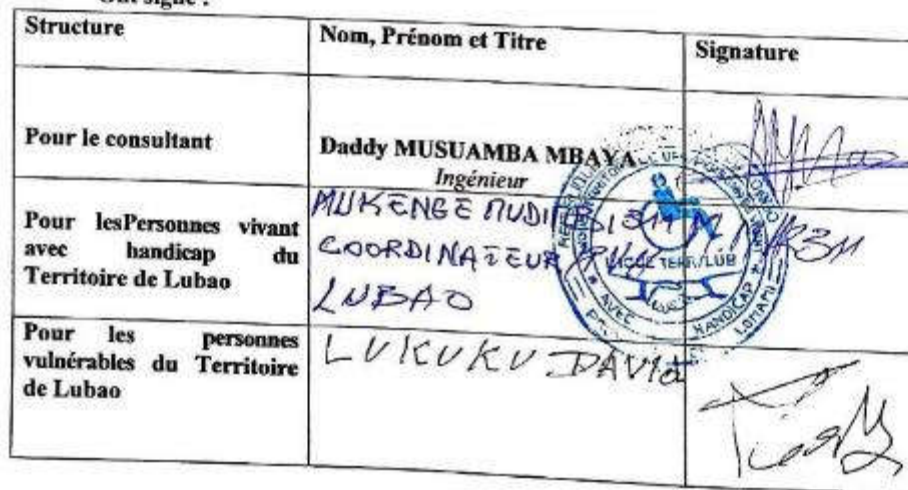 Ont signé :
Structure
Nom, Prénom et Titre
Signature
Pour le consultant
Daddy MUSUAMBA MBAYA
Ingénieur
Pour lesPersonnes vivant
avec handicap du
Territoire de Lubao
MUKENGE
COORDINATEUR
LUBAO
TERR/LUB
AVEC HANDICAP
LOMAMI
Pour les personnes
vulnérables du Territoire
de Lubao
LUKUKU DAVID